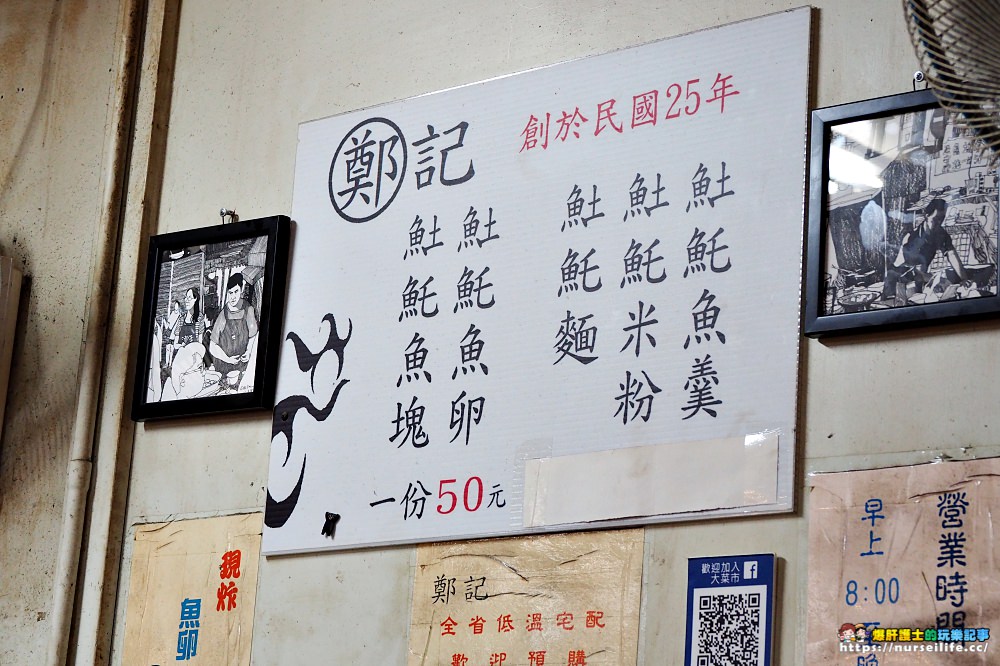 鄭記
創於民國25年
䰾魠魚羹
䰾魠米粉
䰾魠麵
䰾魠魚卵
䰾魠魚塊
一份50元
現炸
魚卵
鄭記
全省低溫宅配
歡迎預購
歡迎加入
大菜市
營業時間
早上
8:00
爆肝護士的玩樂記事
https://nurseilife.cc/